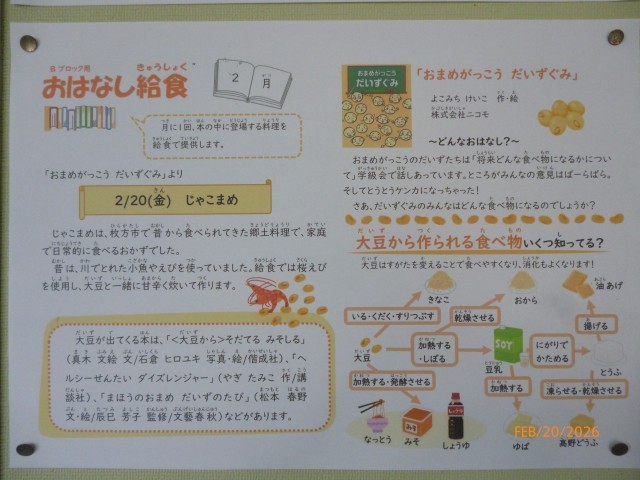 B ブロック用
おはなし給食
2月
月に1回、本の中に登場する料理を
給食で提供します。
「おまめがっこう だいずぐみ」より
2/20(金) じゃこまめ
じゃこまめは、枚方市で昔から食べられてきた郷土料理で、家庭
で日常的に食べるおかずでした。
昔は、川でとれた小魚やえびを使っていました。給食では桜えび
を使用し、大豆と一緒に甘辛く炊いて作ります。
大豆が出てくる本は、「<大豆>そだてる みそしる」
(真木 文絵 文/石倉 ヒロユキ 写真・絵/偕成社)、「ヘ
ルシーせんたい ダイズレンジャー」(やぎ たみこ 作/講
談社)、「まほうのおまめ だいずのたび」(松本 春野
文・絵/辰巳 芳子 監修/文藝春秋)などがあります。
おまめがっこう
だいずぐみ
「おまめがっこう だいずぐみ」
よこみち けいこ 作・絵
株式会社ニコモ
～どんなおはなし?～
おまめがっこうのだいずたちは「将来どんな食べ物になるかについ
て」学級会で話しあっています。ところがみんなの意見はばらばら。
そしてとうとうケンカになっちゃった!
さあ、だいずぐみのみんなはどんな食べ物になるのでしょうか?
大豆から作られる食べ物いくつ知ってる?
大豆はすがたを変えることで食べやすくなり、消化もよくなります!
きなこ
おから
油あげ
いる・くだく・すりつぶす
乾燥させる
揚げる
大豆
加熱する
・しぼる
SOY
豆乳
にがりで
かためる
とうふ
加熱する・発酵させる
加熱する
凍らせる・乾燥させる
なっとう
みそ
しょうゆ
ゆば
高野どうふ
FEB/20/2026